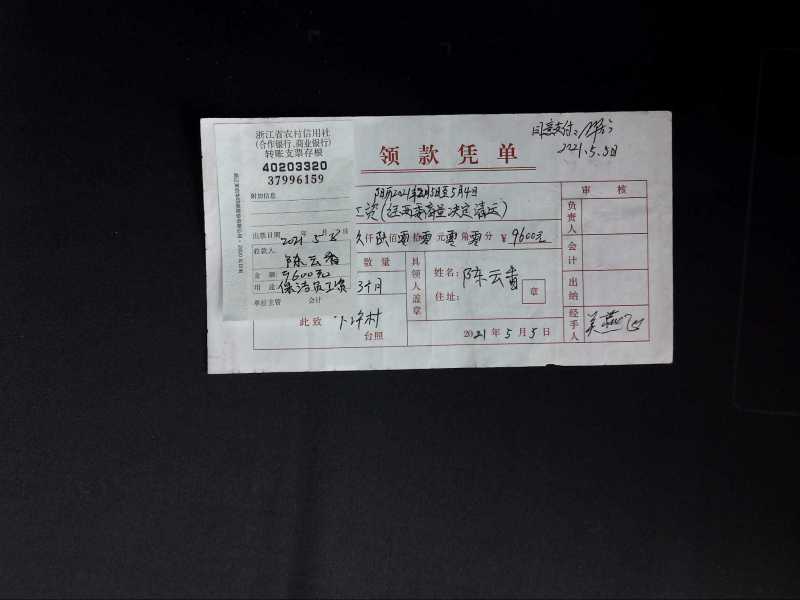 浙江省农村信用社
(合作银行、商业银行)
转账支票存根
40203320
37996159
附加信息
出票日期 2021年5月8日
收款人
陈云香
金额 9600元
用途 保洁员工资
单位主管 会计
领款凭单
同意支付
2021.5.5日
阳历2021年2月5日至5月4日
工资(经两委商量决定清运)
玖仟陆佰零拾零元零角零分 ¥9600元
数量
3个月
具领人盖章
姓名: 陈云香
住址:
章
此致
台照
2021年5月5日
审核
负责人
会计
出纳
经手人